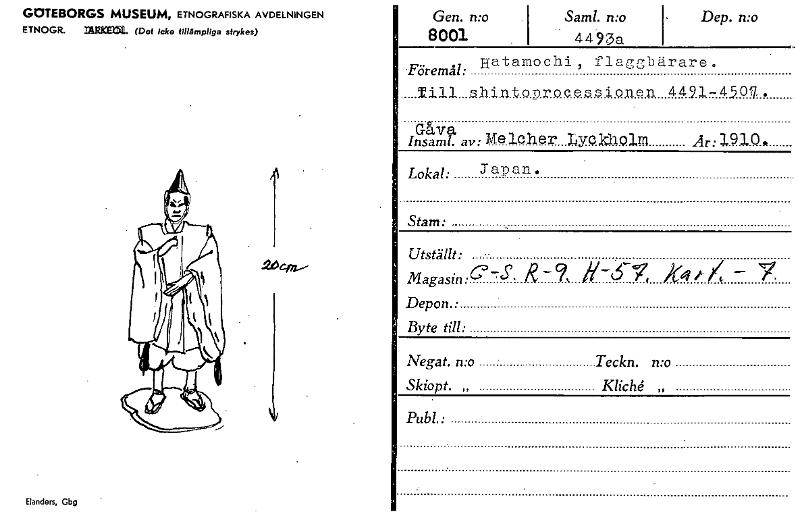 GÖTEBORGS MUSEUM, ETNOGRAFISKA AVDELNINGEN
ETNOGR. ARKEOL. (Det icke tillämpliga strykes)
20 cm
Elanders, Gbg
Gen. n:o Saml. n:o Dep. n:o
8001 4493a
Föremål: Hatamochi, flaggbärare.
Till shintoprocessionen 4491-4507.
Gåva
Insaml. av: Melcher Lyckholm År: 1910.
Lokal: Japan.
Stam:
Utställt:
Magasin: C-S. R-9. H-57. Kart. - 7.
Depon.:
Byte till:
Negat. n:o Teckn. n:o
Skiopt. „ Kliché „
Publ.: